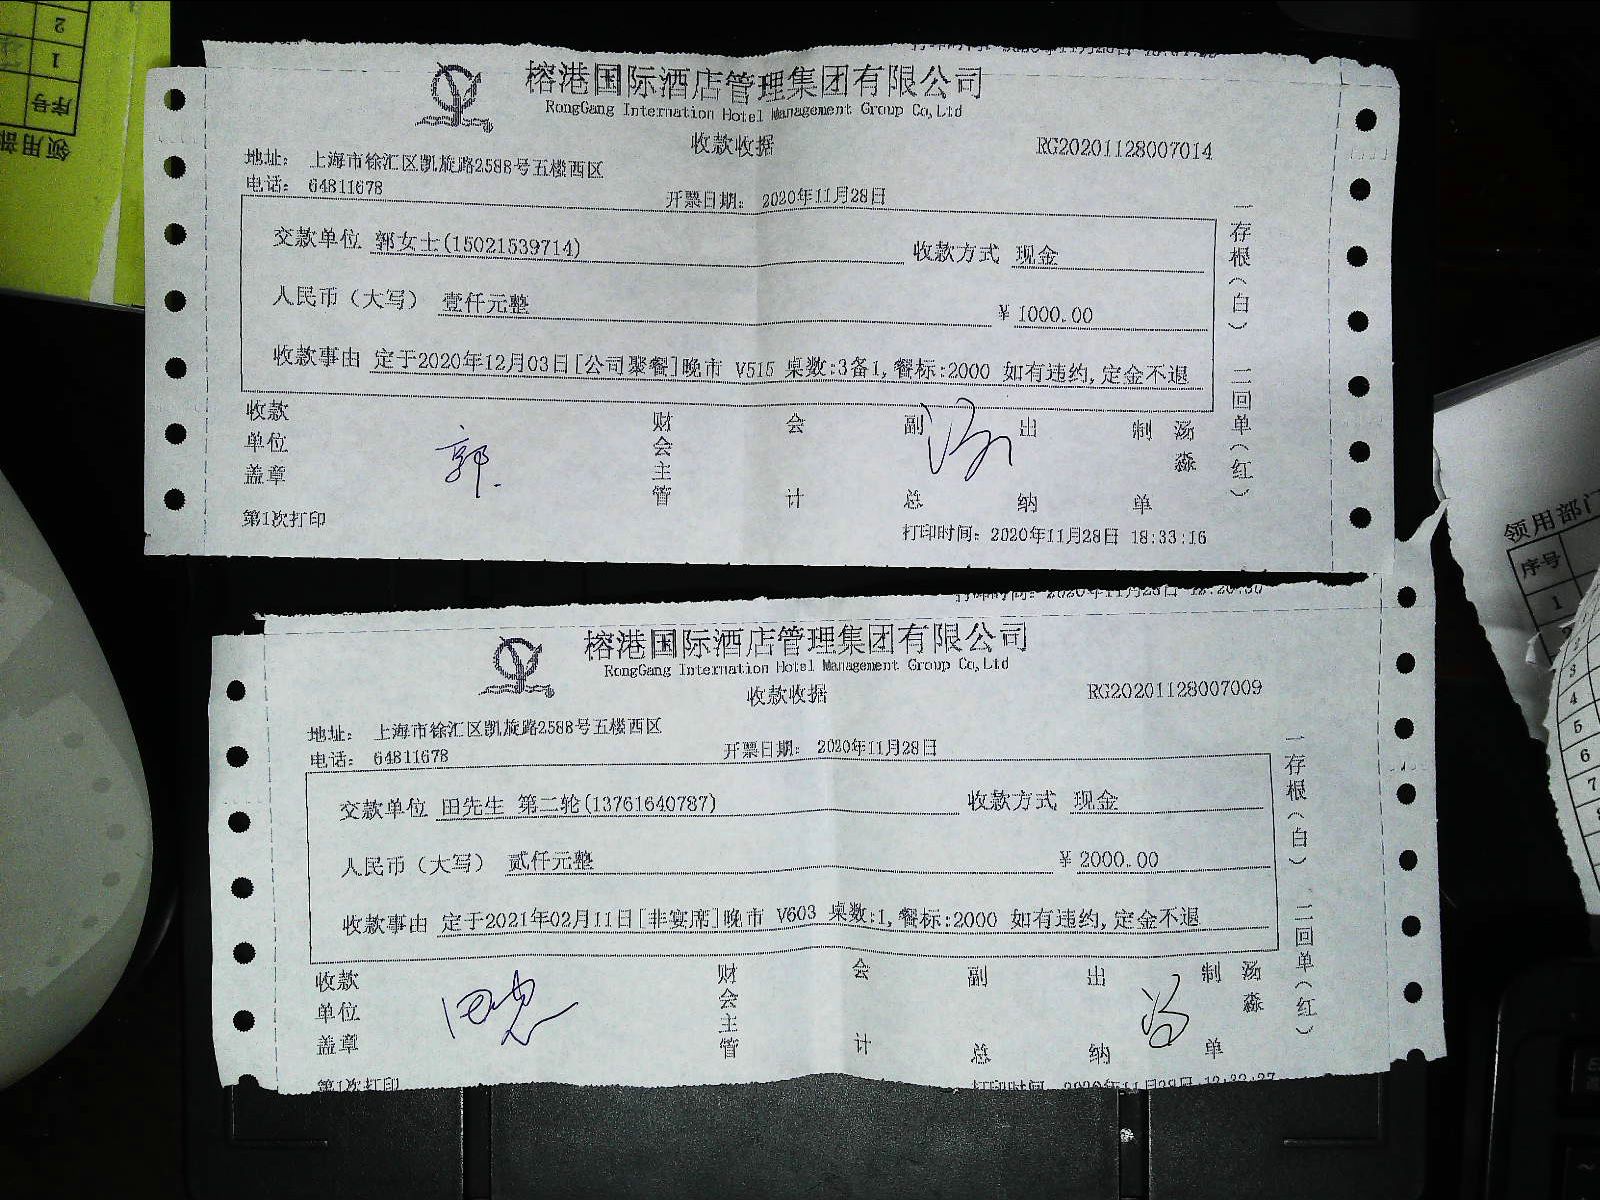 2
1
序号
领用部
榕港国际酒店管理集团有限公司
RongGang Internation Hotel Management Group Co,Ltd
收款收据
RG20201128007014
地址： 上海市徐汇区凯旋路2588号五楼西区
电话： 64811678
开票日期： 2020年11月28日
交款单位 郭女士(15021539714) 收款方式 现金
人民币（大写） 壹仟元整 ¥ 1000.00
收款事由 定于2020年12月03日[公司聚餐]晚市 V515 桌数:3备1,餐标:2000 如有违约,定金不退
一存根（白） 二回单（红）
收款单位盖章 郭 财会主管 会计 副总 出纳 制单 汤淼
第1次打印
打印时间： 2020年11月28日 18:33:16
榕港国际酒店管理集团有限公司
RongGang Internation Hotel Management Group Co,Ltd
收款收据
RG20201128007009
地址： 上海市徐汇区凯旋路2588号五楼西区
电话： 64811678
开票日期： 2020年11月28日
交款单位 田先生 第二轮(13761640787) 收款方式 现金
人民币（大写） 贰仟元整 ¥ 2000.00
收款事由 定于2021年02月11日[非宴席]晚市 V603 桌数:1,餐标:2000 如有违约,定金不退
一存根（白） 二回单（红）
收款单位盖章 财会主管 会计 副总 出纳 制单 汤淼
第1次打印
打印时间 2020年11月28日 12:32:27
领用部门
序号
1
3
4
5
6
7